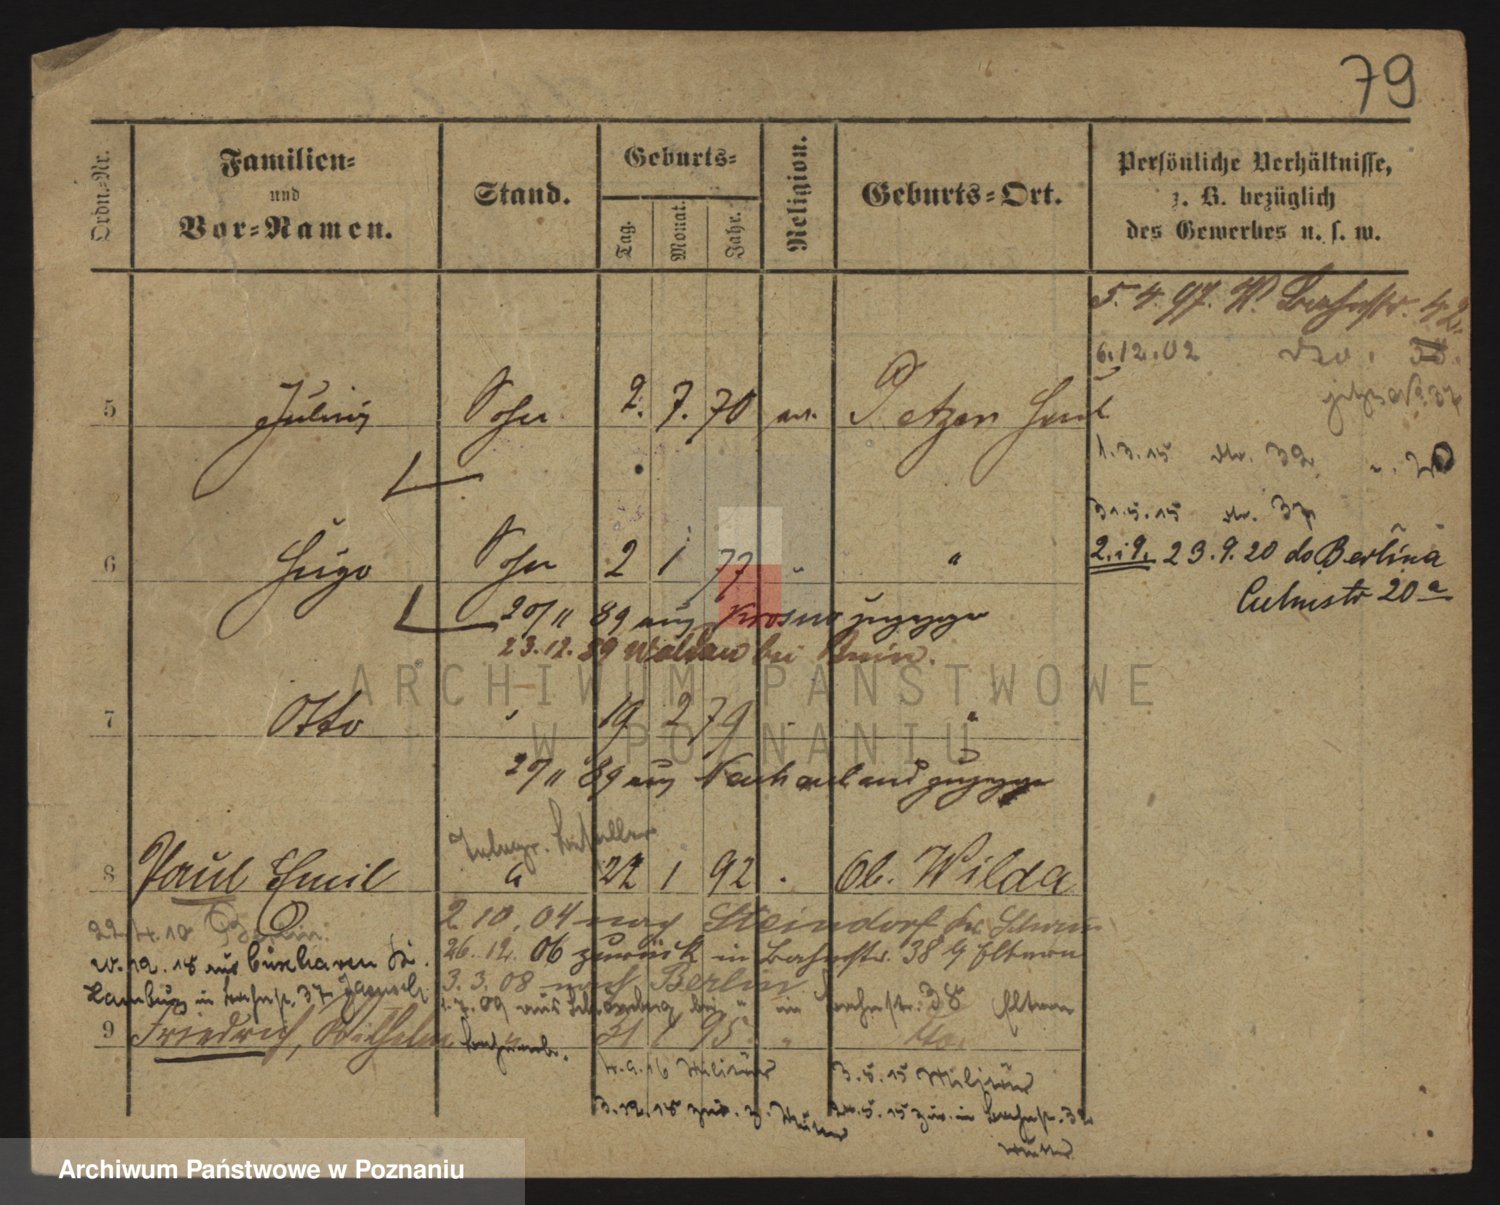 79
Ordn-Nr.
Familien-
und
Vor-Namen.
Stand.
Geburts-
Tag.
Monat.
Jahr.
Religion.
Geburts-Ort.
Persönliche Verhältnisse,
z. B. bezüglich
des Gewerbes u. s. w.
5. 4. 97. W. Bahnstr. 42.
6.12.02 dto.
5 Julius Sohn 2. 7. 70 ev.
1.3.15 dto. 32
31.5.15 dto. 37
6 Hugo Sohn 2 1 77 " "
2. i 9. 23.9.20 do Berlina
Culmstr 20a
20/11 89 aus Krosno zugezogen
23.12.89 Waldau bei Bnin.
ARCHIWUM PAŃSTWOWE
W POZNANIU
7 Otto " 19 2 79 " "
20/11 89 aus Neuhauland zugezogen
Telegr. Besteller
8 Paul Emil " 22 1 92 " Ob. Wilda
22.4.10 Berlin.
2.10.04 nach Steindorf
26.12.06 zurück in Bahnstr. 38 b Eltern
20.12.18 aus Cuxhaven
Hamburg in Bahnstr. 37
3.3.08 nach Berlin
1.7.09 aus Schöneberg bei " in Bahnstr. 38 Eltern
9 Friedrich, Wilhelm 31 1 95 " dto.
4.9.16 Militär
3.5.15 Militär
3.12.18 zur. z. Mutter
31.5.15 zur. in Bahnstr. 32
Mutter
Archiwum Państwowe w Poznaniu